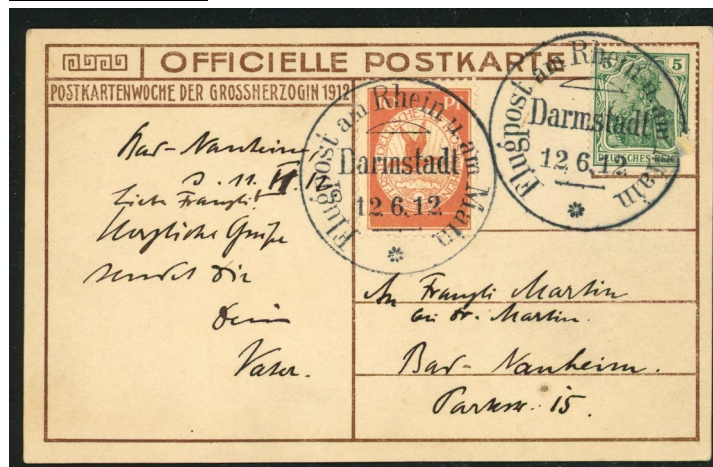 OFFICIELLE POSTKARTE
POSTKARTENWOCHE DER GROSSHERZOGIN 1912
Flugpost am Rhein u. am Main
Darmstadt
12.6.12
Flugpost am Rhein u. am Main
Darmstadt
12.6.12
5
DEUTSCHES REICH
Bad-Nauheim
d. 11. VI
Liebe Franzli!
Herzliche Grüße
sendet Dir
Dein
Vater.
An Franzli Martin
bei Dr. Martin.
Bad-Nauheim.
Parkstr. 15.